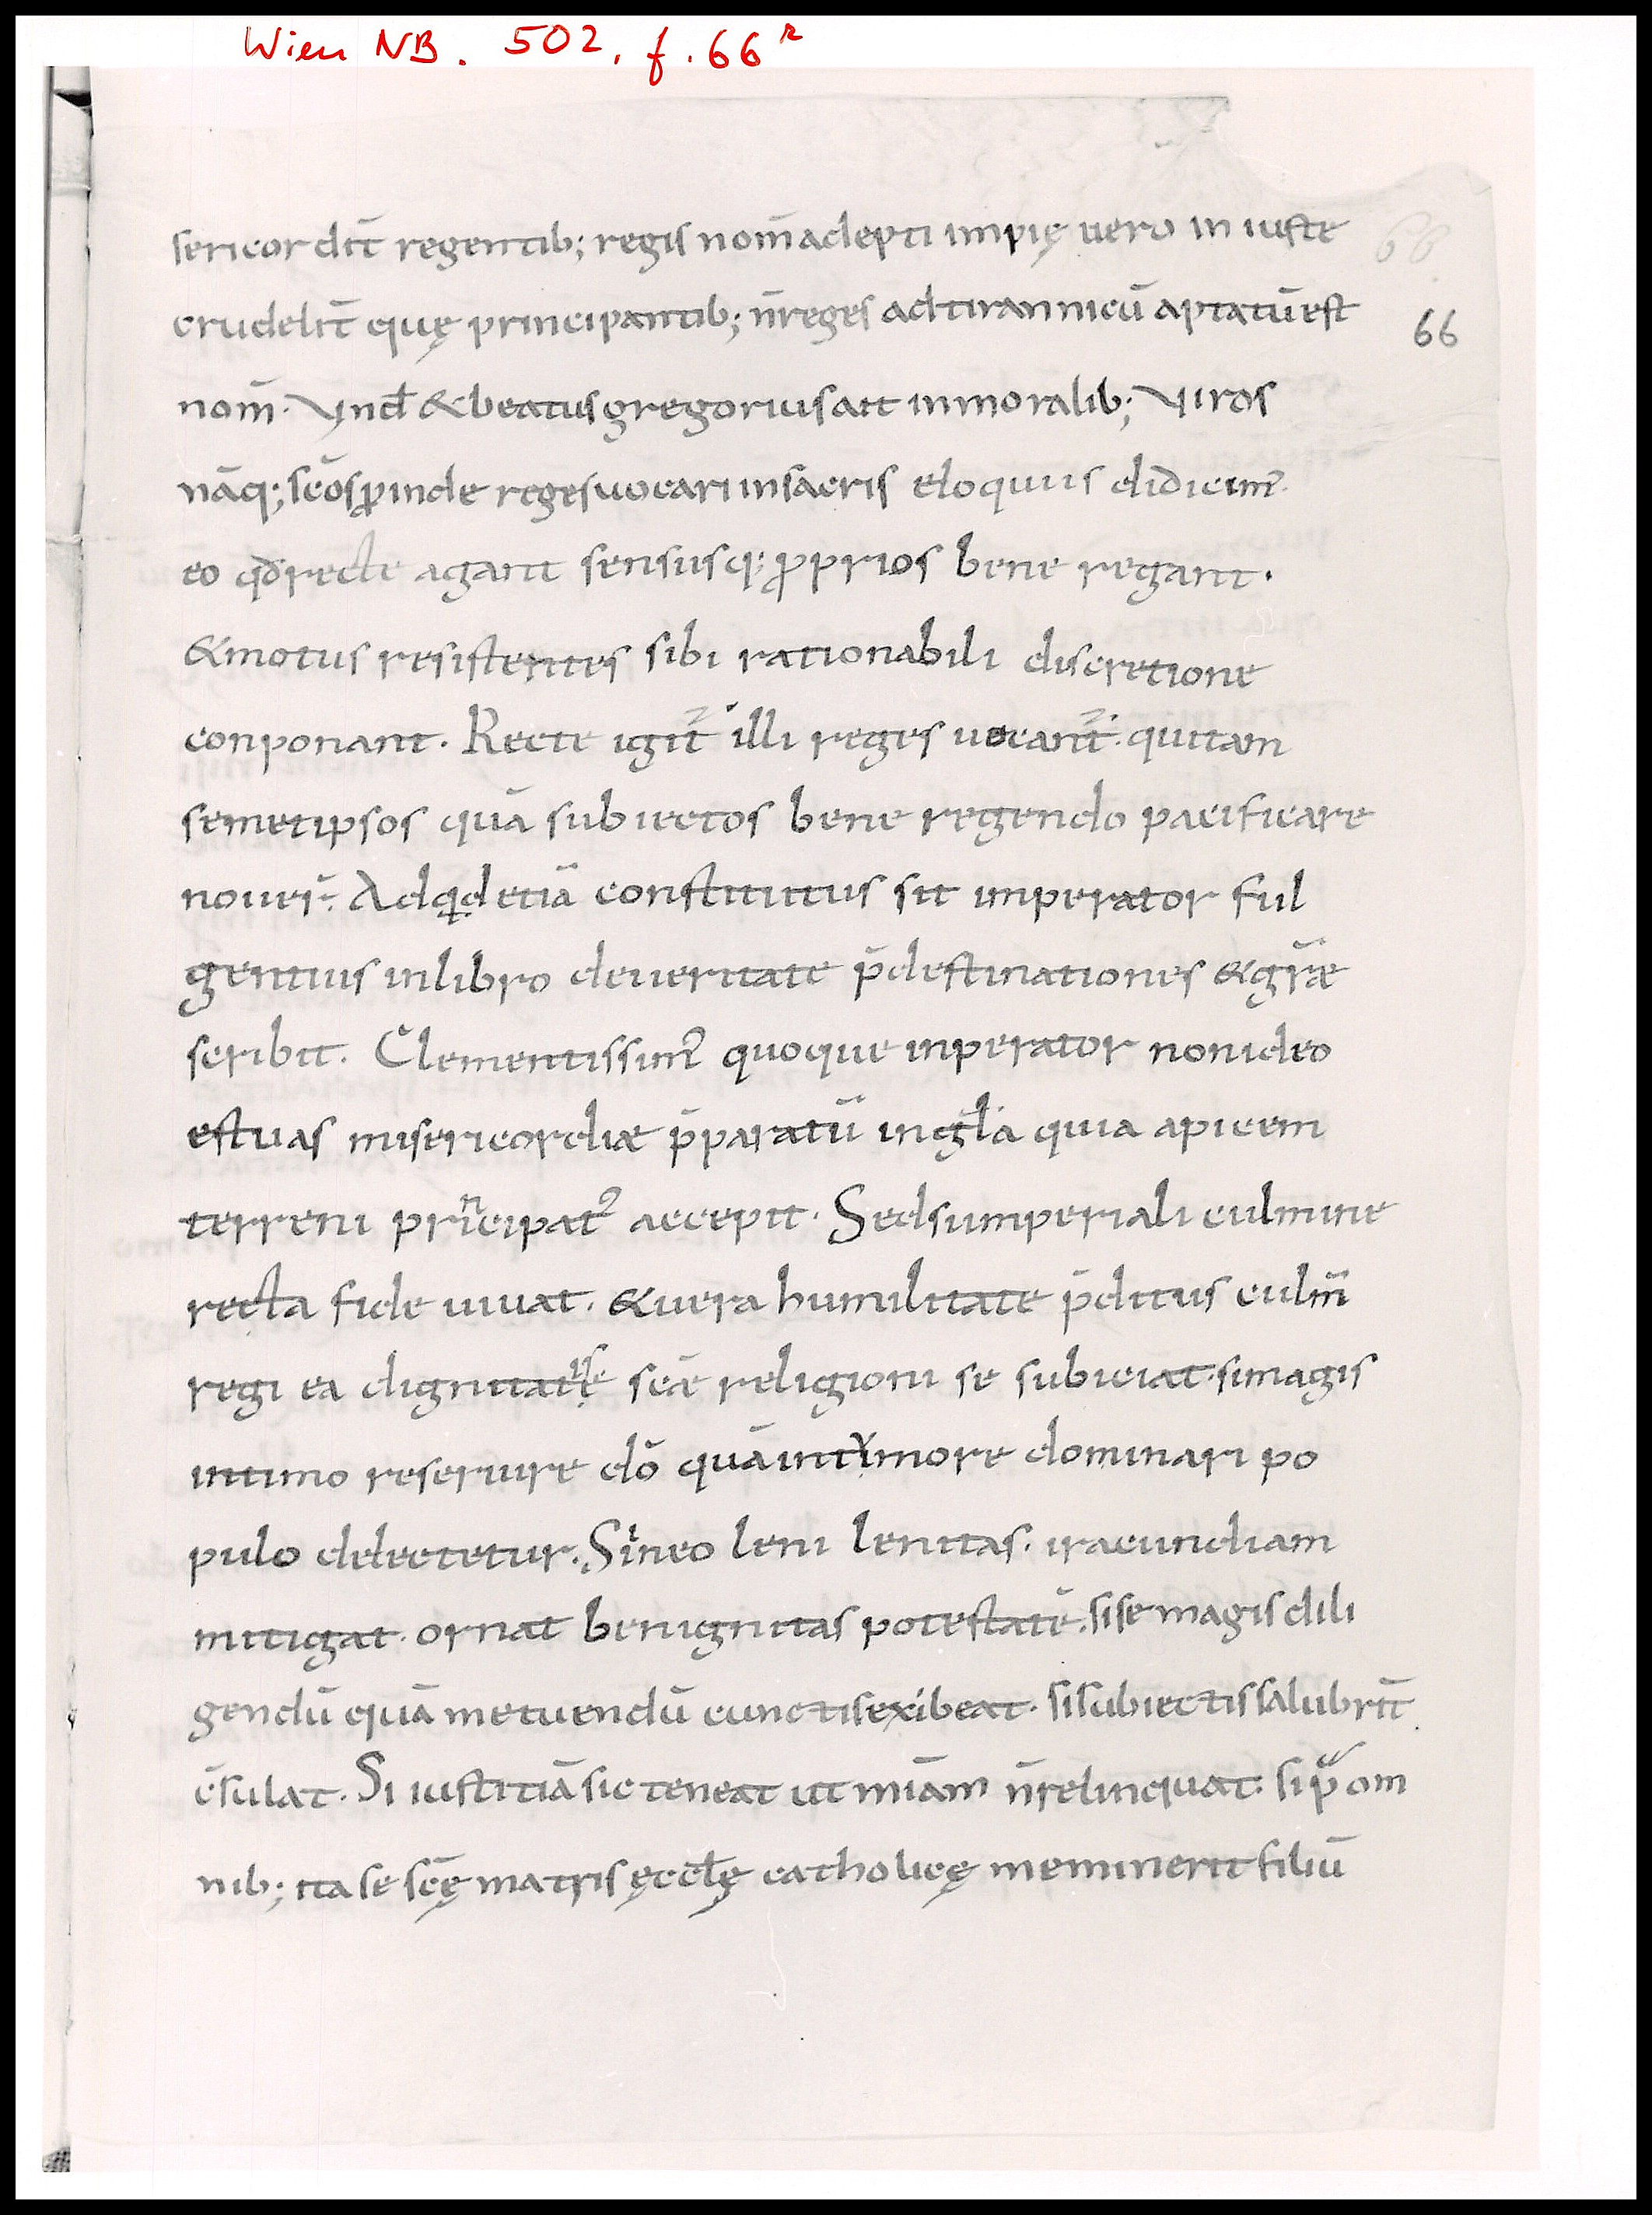 Wien NB. 502, f. 66 r
sericordit̄ regentib; regis nom̄ adepti impię uero iniuste
66
crudelit̄ quę principantib; n̄ reges ad tirannicū aptatū est
66
nom̄. Vnd̄ & beatus gregorius ait in moralib; Viros
nāq; sc̄os ꝓinde reges uocari in sacris eloquiis didicim᾿.
eo qđ recte agant sensusq; ꝓprios bene regant.
& motus resistentes sibi rationabili discretione
conponant. Recte igit᷑ illi reges uocant᷑. qui tam
semetipsos quā subiectos bene regendo pacificare
nouer̄. Ad qid etiā constitutus sit imperator ful
gentius in libro de ueritate p̄destinationes & gr̄æ
scribit. Clementissim᾿ quoque inperator non ideo
est uas misericordiæ p̄paratū in gl̄a quia apicem
terreni prīncipat᾿ accepit. Sed si imperiali culmine
recta fide uiuat. & uera humilitate p̄ditus culm̄
regi ea dignitatēse sc̄æ religioni se subiciat. si magis
in timo reseruire dō quā in tymore dominari po
pulo delectetur. Si in eo leni lenitas. iracundiam
mitigat. ornat benignitas potestatē. si se magis dili
gendū quā metuendū cunctis exibeat. si subiectis salubrit̄
c̄sulat. Si iustitiā sic teneat ut miām n̄ relinquat. si p̄ om
nib; ita se sc̄ę matris ęccl̄ę catholicę meminerit filiū